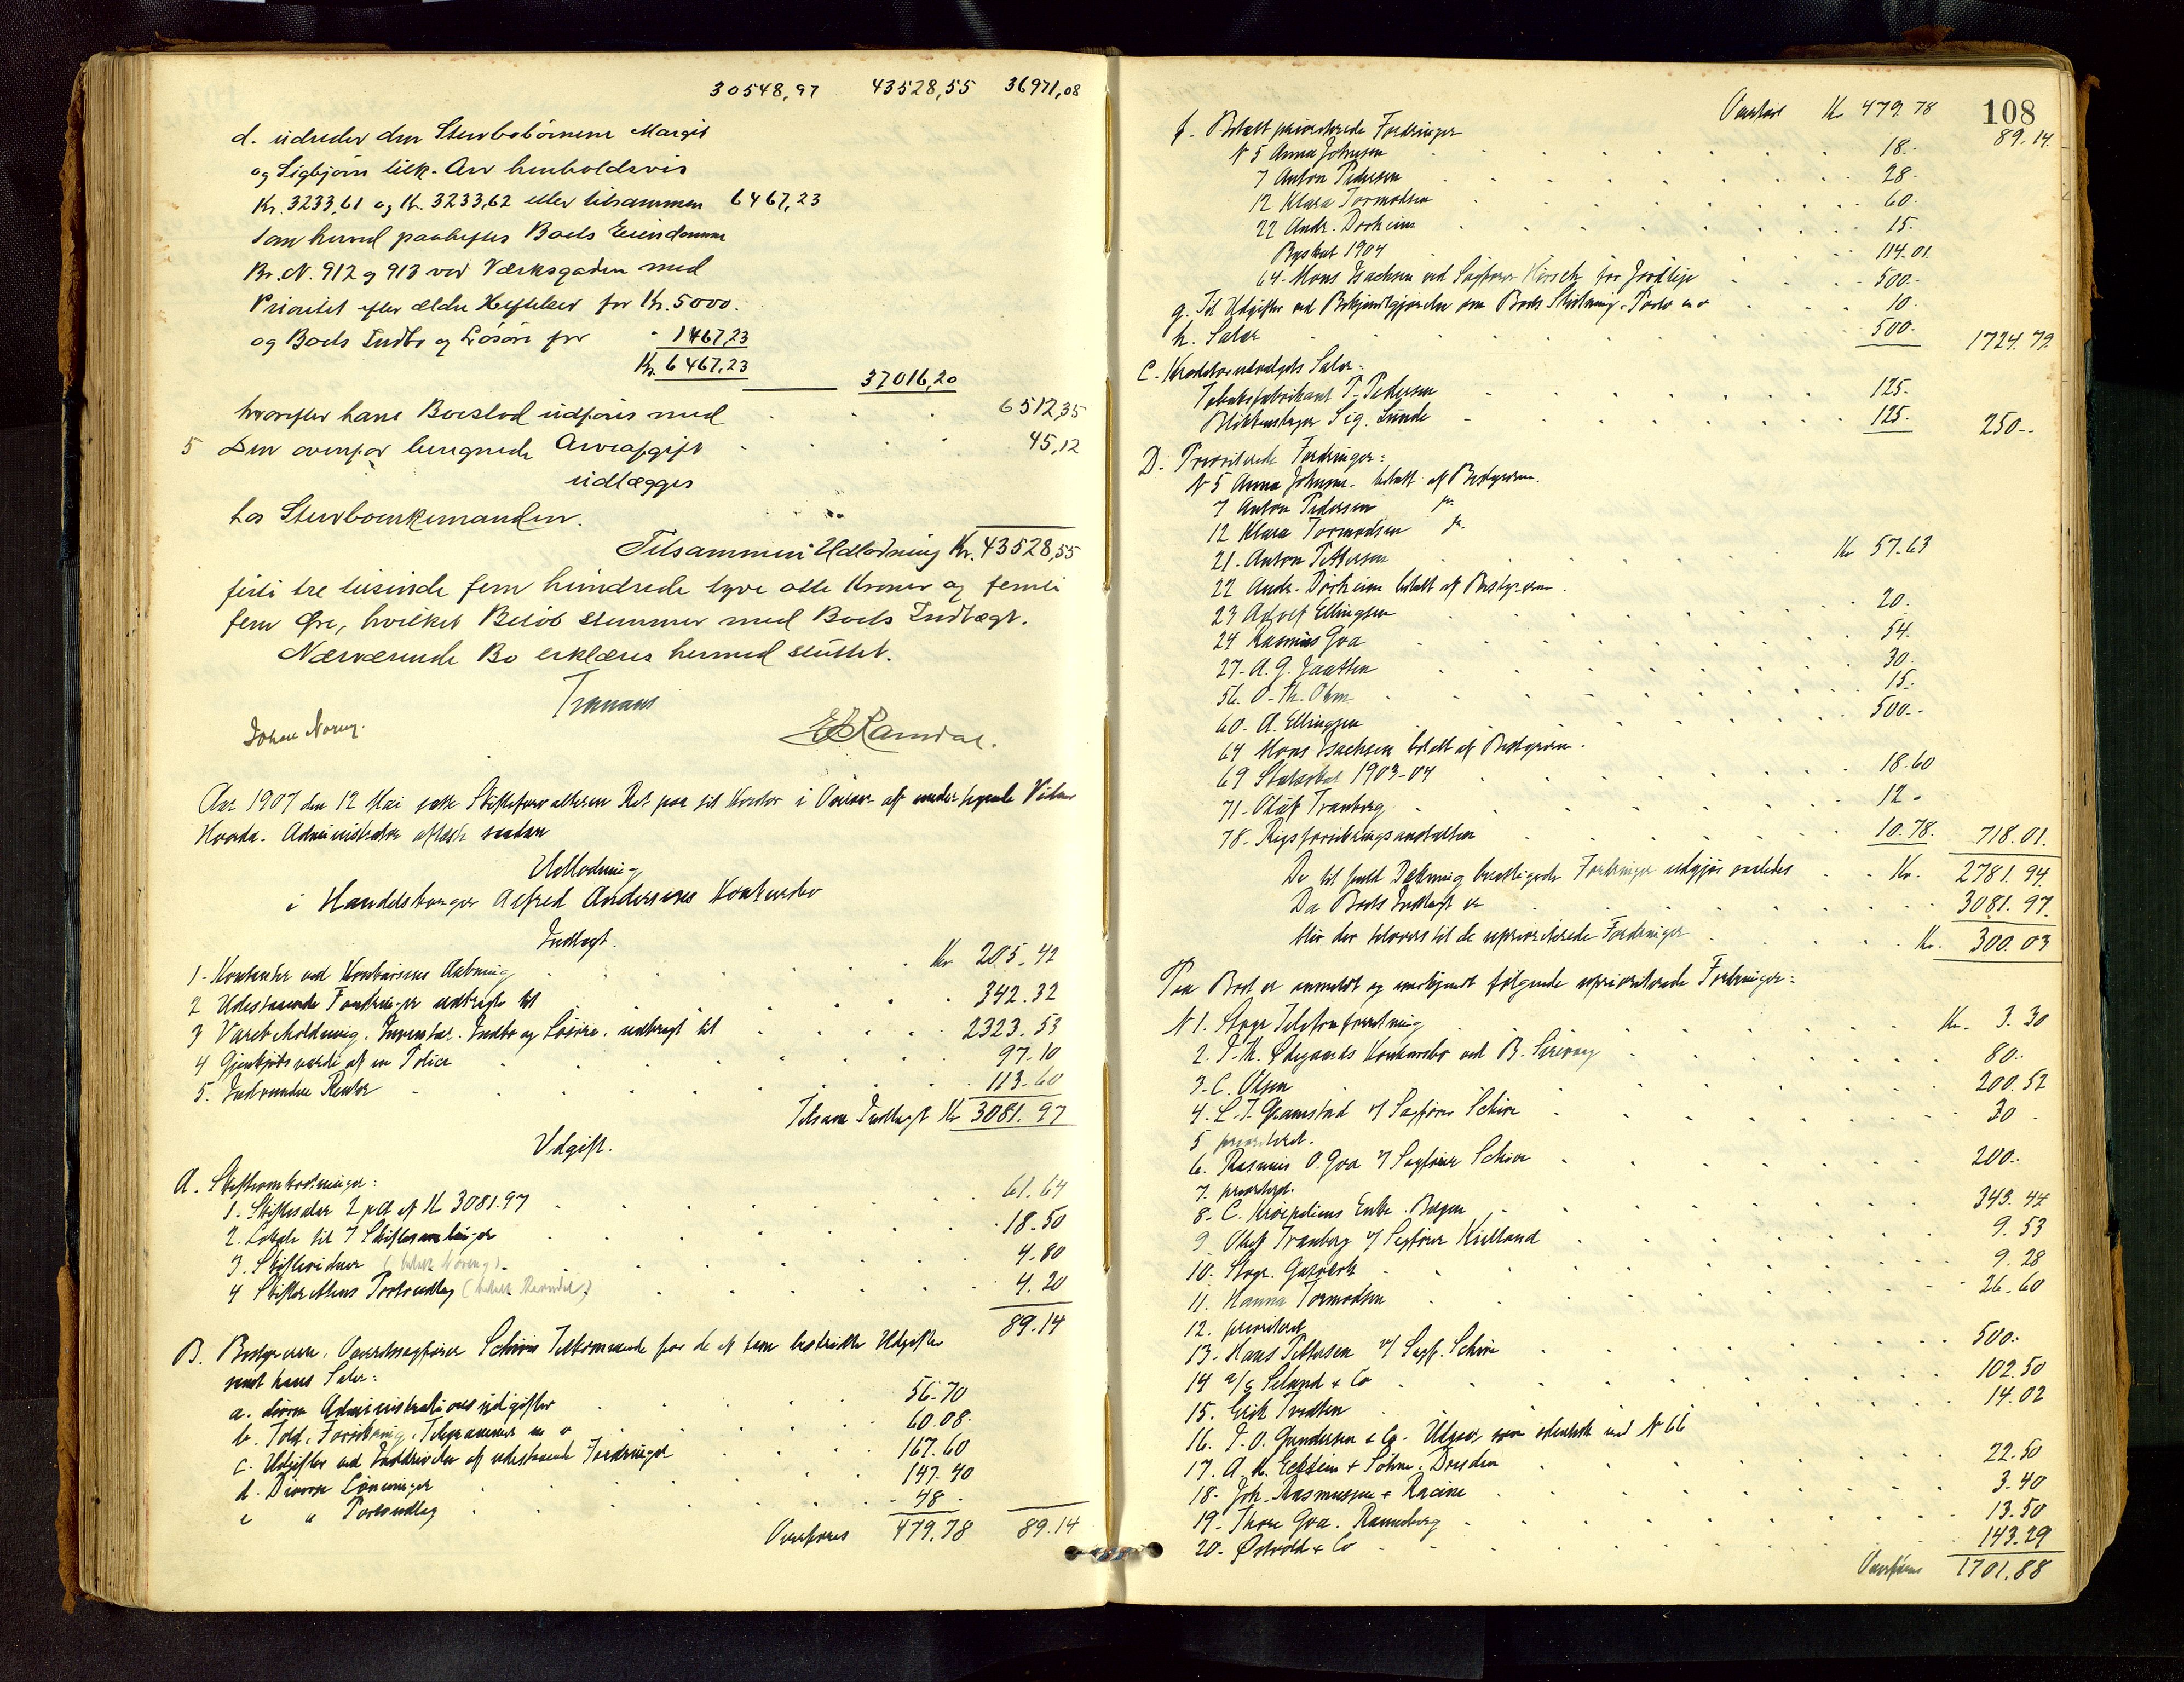 30548,97 43528,55 36971,08
d. udreder den Stervbobörnene Margit
og Sigbjörn tilk. Arv henholdsvis
Kr. 3233,61 og Kr. 3233,62 eller tilsammen 6467,23
som herved paaheftes Boets Eiendomme
Br. N. 912 og 913 ved Værksgaden med
Prioritet efter ældre Heftelser for Kr. 5000.
og Boets Indbo og Lösöre for - 1467,23
Kr. 6467,23 37016,20
hvorefter hans Boeslod udföres med 6512,35
5 Den ovenfor beregnede Arveafgift 45,12
udlægges
hos Stervboenkemanden.
Tilsammen Udlodning Kr. 43528,55
förti tre tusinde fem hundrede tyve otte Kroner og femti
fem Øre, hvilket Belöb stemmer med Boets Indtægt.
Nærværende Bo erklæres hermed sluttet.
Tranaas
Johan Noreng. Ramdal.
Aar 1907 den 12 Mai satte Skifteforvalteren Ret paa sit Kontor i Overvær af undertegnede Vidner
Hvorda. Administrator afsagde saadan
Udlodning
i Handelsborger Alfred Andersens Konkursbo
Indtægt.
1. Kontanter ved Konkursens Aabning Kr 205.42
2 Udestaaende Fordringer indbragte til 342.32
3 Varebeholdning. Inventar. Indbo og Lösöre. indbragt til 2323.53
4 Gjenkjöbsværdi af en Police 97.10
5. Indvundne Renter 113.60
Tilsam Indtægt Kr 3081.97
Udgift.
A. Skifteomkostninger:
1. Skiftesalær 2 pct af Kr 3081.97 61.64
2. Lokale til 7 Skiftesamlinger 18.50
3. Skiftevidner (betalt Noreng) 4.80
4 Skifterettens Portoudlæg (betalt Ramdal) 4.20
89.14
B. Bestyreren, Overretssagförer Schiøs Tilkommende for de af ham bestridte Udgifter
samt hans Salær:
a. diverse Administrationsudgifter 56.70
b. Told. Forsikring. Telegrammer m v 60.08
c. Udgifter ved Inddrivelse af udestaaende Fordringer 167.60
d. Diverse Lönninger 147.40
e " Portoudlæg 48.
Overföres 479.78 89.14
108
Overfört Kr 479 78 89.14
f. Betalt prioriterede Fordringer
N 5 Anna Johnsen 18.
7 Anton Pedersen 28.
12 Klara Tormodsen 60.
22 Andr. Dorheim 15.
Byskat 1904 114.01
64. Mons Isachsen ved Sagförer Hirsch for Jordleje 500.
g. Til Udgifter ved Bekjendtgjörelse om Boets Slutning. Porto m v 10.
h. Salær 500. 1724.79
C. Kreditorudvalgets Salær:
Tobaksfabrikant T. Pedersen 125.
Blikkenslager Sig. Lunde 125. 250.
D. Prioriterede Fordringer:
N 5 Anna Johnsen. betalt af Bestyreren.
7 Anton Pedersen do
12 Klara Tormodsen do
21. Anton Pettersen Kr 57.63
22 Andr. Dorheim betalt af Bestyreren.
23 Adolf Ellingsen 20.
24 Rasmus Goa 54.
27. A. G. Jaatten 30.
56. O. Th. Ohm 15.
60. A. Ellingsen 500.
64 Mons Isachsen betalt af Bestyreren.
69 Statsskat 1903-04 18.60
71. Oluf Tranberg 12.
78. Rigsforsikringsanstalten 10.78. 718.01.
De til fuld Dækning berettigede Fordringer udgjör saaledes Kr. 2781.94
Da Boets Indtægt er 3081.97
bliver der tilovers til de uprioriterede Fordringer Kr. 300.03
Paa Boet er anmeldt og anerkjendt følgende uprioriterede Fordringer:
N 1. Stvgr Telefonforretning Kr. 3.30
2. Th. Ødegaards Konkursbo ved B. Sirevaag 80.
3. C. Olsen 200.52
4. L. T. Gramstad v/ Sagförer Schiøs 30.
5 prioriteret.
6. Rasmus O. Goa v/ Sagförer Schiøs 200.
7. prioritert.
8. C. Kröepeliens Enke. Bergen 343.44
9 Oluf Tranberg v/ Sagförer Kielland 9.53
10. Stvgr. Gasværk 9.28
11. Hanna Tormodsen 26.60
12. prioriteret
13. Hans Pettersen v/ Sagf. Schiøs 500.
14 a/s Seland & Co 102.50
15. Erik Tvedten 14.02
16. T. O. Gundersen & Co. Udgaar som identisk med N 66
17. A. M. Eckstein & Söhne. Dresden 22.50
18. Joh. Rasmussen & Racine 3.40
19. Thore Goa. Randeberg 13.50
20. Östvold & Co 143.29
Overföres 1701.88